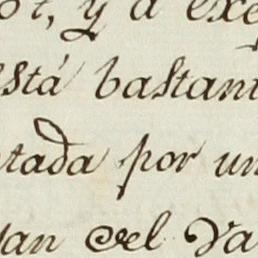 t, y a exe
stá bastant
tada por un
an del Va